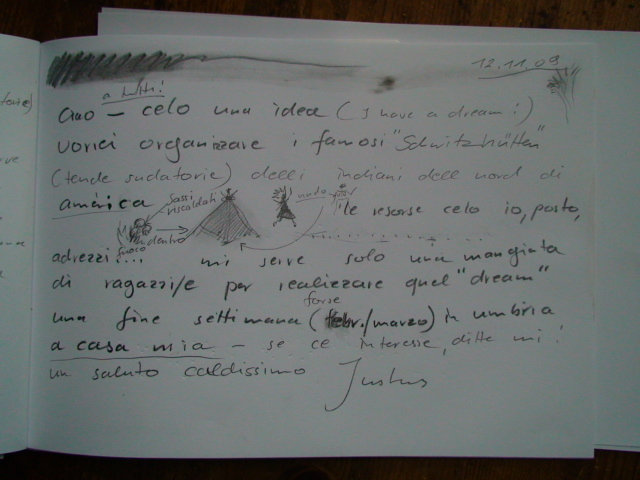 12.11.09
a tutti!
Ciao – celo una idea (I have a dream!)
vorrei organizzare i famosi "Schwitzhütten"
(tende sudatorie) delli indiani dell nord di
américa
sassi riscaldati
nudo
fuoco
dentro
le resorse celo io, posto,
adrezzi... mi serve solo una mangiata
di ragazzi/e per realizzare quel "dream"
forse
una fine settimana (febr./marzo) in umbria
a casa mia – se ce interesse, ditte mi!
un saluto caldissimo Justus